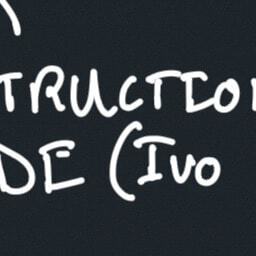 TRUCTIO
DE (Ivo